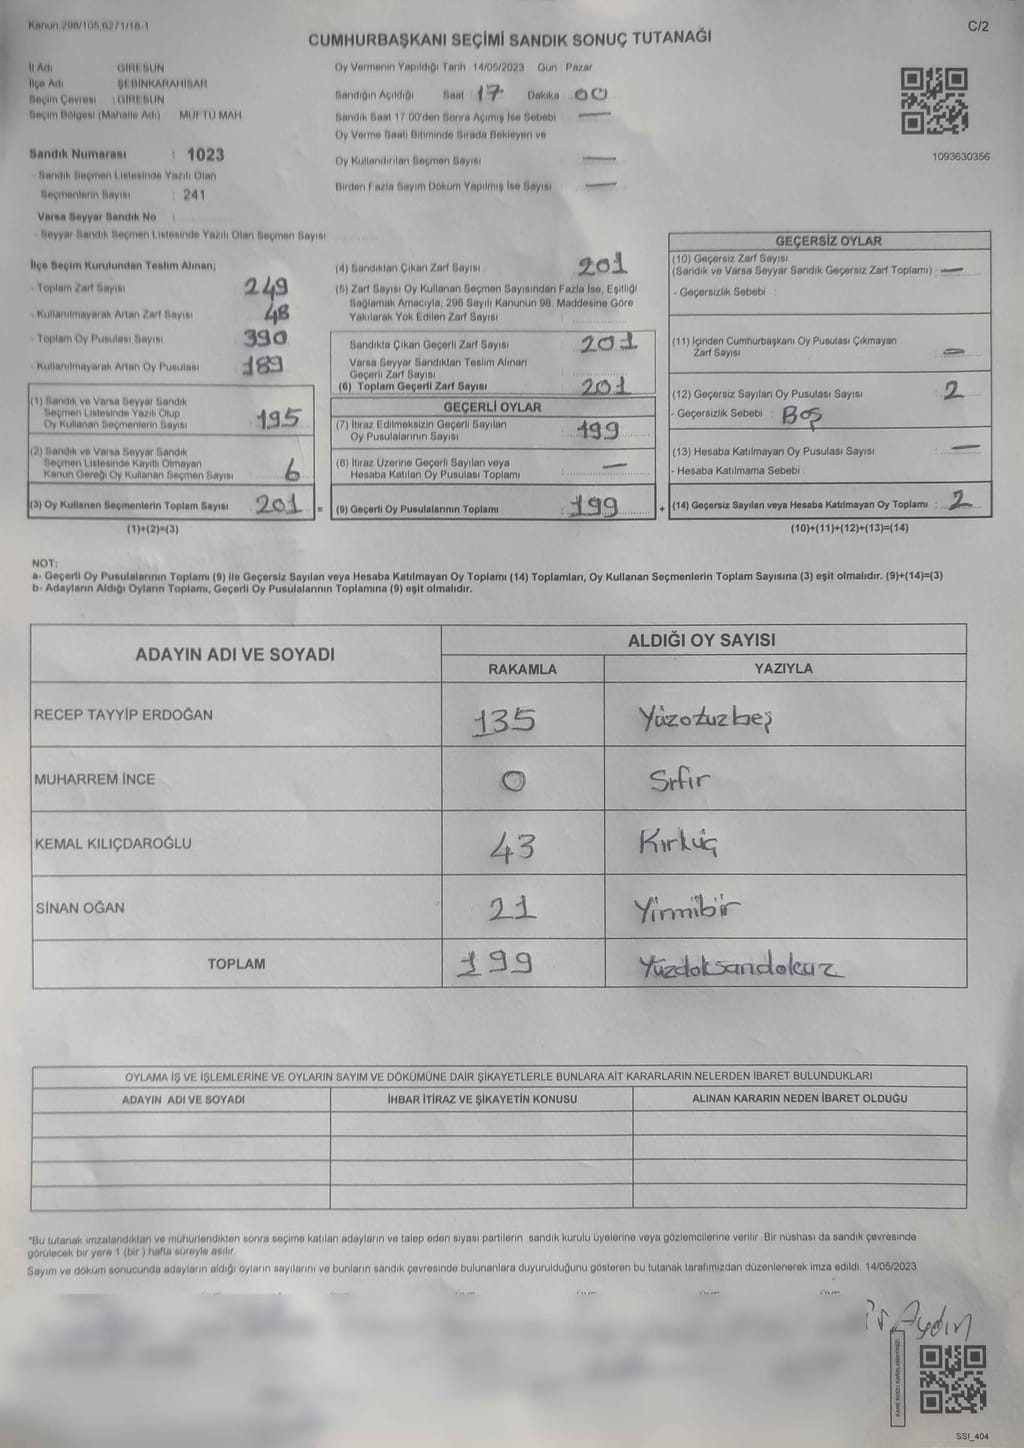 Kanun 298/105,6271/16-1
C/2
CUMHURBAŞKANI SEÇİMİ SANDIK SONUÇ TUTANAĞI
İl Adı GİRESUN
İlçe Adı ŞEBİNKARAHİSAR
Seçim Çevresi : GİRESUN
Seçim Bölgesi (Mahalle Adı) MÜFTÜ MAH
Sandık Numarası : 1023
- Sandık Seçmen Listesinde Yazılı Olan
Seçmenlerin Sayısı : 241
Varsa Seyyar Sandık No :
- Seyyar Sandık Seçmen Listesinde Yazılı Olan Seçmen Sayısı
Oy Vermenin Yapıldığı Tarih 14/05/2023 Gün Pazar
Sandığın Açıldığı Saat 17 Dakika 00
Sandık Saat 17 00'den Sonra Açımış İse Sebebi —
Oy Verme Saati Bitiminde Sırada Bekleyen ve
Oy Kullandırılan Seçmen Sayısı —
Birden Fazla Sayım Döküm Yapılmış İse Sayısı —
1093630356
İlçe Seçim Kurulundan Teslim Alınan;
- Toplam Zarf Sayısı 249
- Kullanılmayarak Artan Zarf Sayısı 48
- Toplam Oy Pusulası Sayısı 390
- Kullanılmayarak Artan Oy Pusulası 189
(1) Sandık ve Varsa Seyyar Sandık
Seçmen Listesinde Yazılı Olup
Oy Kullanan Seçmenlerin Sayısı 195
(2) Sandık ve Varsa Seyyar Sandık
Seçmen Listesinde Kayıtlı Olmayan
Kanun Gereği Oy Kullanan Seçmen Sayısı 6
(3) Oy Kullanan Seçmenlerin Toplam Sayısı 201 =
(1)+(2)=(3)
(4) Sandıktan Çıkan Zarf Sayısı 201
(5) Zarf Sayısı Oy Kullanan Seçmen Sayısından Fazla İse, Eşitliği
Sağlamak Amacıyla, 298 Sayılı Kanunun 98. Maddesine Göre
Yakılarak Yok Edilen Zarf Sayısı
Sandıkta Çıkan Geçerli Zarf Sayısı 201
Varsa Seyyar Sandıktan Teslim Alınan
Geçerli Zarf Sayısı
(6) Toplam Geçerli Zarf Sayısı 201
GEÇERLİ OYLAR
(7) İtiraz Edilmeksizin Geçerli Sayılan
Oy Pusulalarının Sayısı 199
(8) İtiraz Üzerine Geçerli Sayılan veya
Hesaba Katılan Oy Pusulası Toplamı —
(9) Geçerli Oy Pusulalarının Toplamı : 199 +
GEÇERSİZ OYLAR
(10) Geçersiz Zarf Sayısı
(Sandık ve Varsa Seyyar Sandık Geçersiz Zarf Toplamı) : —
- Geçersizlik Sebebi :
(11) İçinden Cumhurbaşkanı Oy Pusulası Çıkmayan
Zarf Sayısı —
(12) Geçersiz Sayılan Oy Pusulası Sayısı 2
- Geçersizlik Sebebi : Boş
(13) Hesaba Katılmayan Oy Pusulası Sayısı —
- Hesaba Katılmama Sebebi :
(14) Geçersiz Sayılan veya Hesaba Katılmayan Oy Toplamı : 2
(10)+(11)+(12)+(13)=(14)
NOT:
a- Geçerli Oy Pusulalarının Toplamı (9) ile Geçersiz Sayılan veya Hesaba Katılmayan Oy Toplamı (14) Toplamları, Oy Kullanan Seçmenlerin Toplam Sayısına (3) eşit olmalıdır. (9)+(14)=(3)
b- Adayların Aldığı Oyların Toplamı, Geçerli Oy Pusulalarının Toplamına (9) eşit olmalıdır.
ADAYIN ADI VE SOYADI
ALDIĞI OY SAYISI
RAKAMLA YAZIYLA
RECEP TAYYİP ERDOĞAN 135 Yüzotuzbeş
MUHARREM İNCE 0 Sıfır
KEMAL KILIÇDAROĞLU 43 Kırküç
SİNAN OĞAN 21 Yirmibir
TOPLAM 199 Yüzdoksandokuz
OYLAMA İŞ VE İŞLEMLERİNE VE OYLARIN SAYIM VE DÖKÜMÜNE DAİR ŞİKAYETLERLE BUNLARA AİT KARARLARIN NELERDEN İBARET BULUNDUKLARI
ADAYIN ADI VE SOYADI İHBAR İTİRAZ VE ŞİKAYETİN KONUSU ALINAN KARARIN NEDEN İBARET OLDUĞU
*Bu tutanak imzalandıktan ve mühürlendikten sonra seçime katılan adayların ve talep eden siyasi partilerin sandık kurulu üyelerine veya gözlemcilerine verilir. Bir nüshası da sandık çevresinde
görülecek bir yere 1 (bir) hafta süreyle asılır
Sayım ve döküm sonucunda adayların aldığı oyların sayılarını ve bunların sandık çevresinde bulunanlara duyurulduğunu gösteren bu tutanak tarafımızdan düzenlenerek imza edildi. 14/05/2023
Aydın
SSI_404